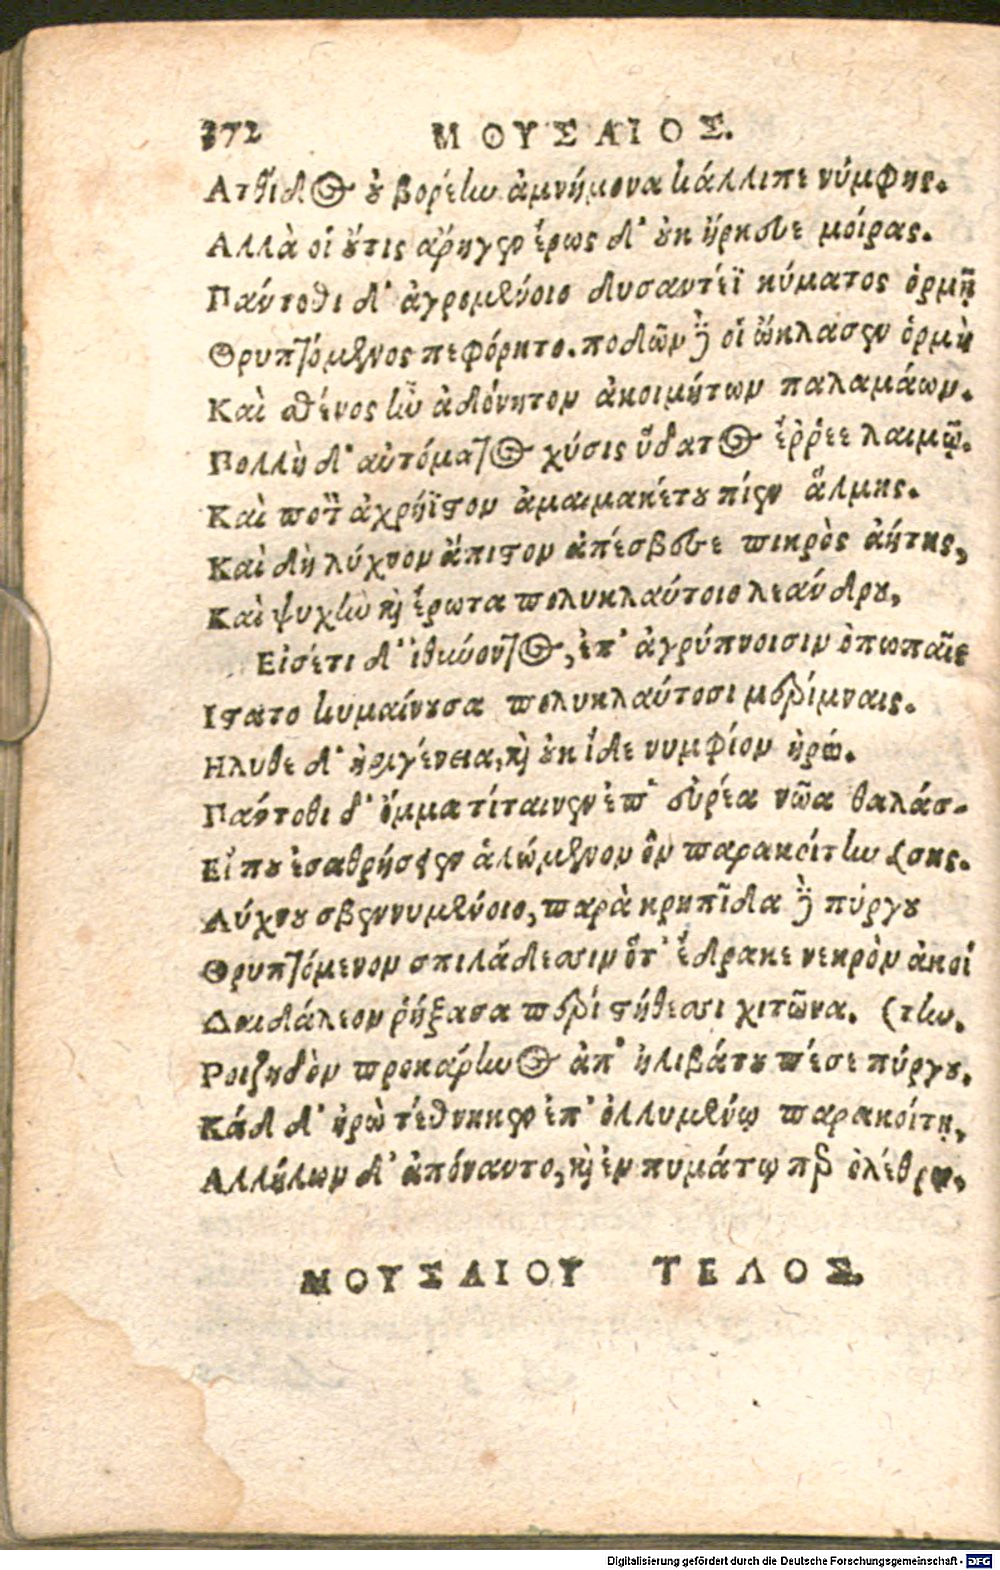 372 ΜΟΥΣΑΙΟΣ.
Ατθίδος οὐ βορέην ἀμνήμονα κάλλιπε νύμφης.
Αλλὰ οἱ οὔτις ἄρηγεν ἔρως δ' οὐκ ἤρκεσε μοίρας.
Πάντοθι δ' ἀγρομένοιο δυσαντέϊ κύματος ὁρμῇ
Θρυπτόμενος πεφόρητο. ποδῶν δὲ οἱ ὤκλασεν ὁρμὴ
Καὶ σθένος ἦν ἀδόνητον ἀκοιμήτων παλαμάων.
Πολλὴ δ' αὐτόματος χύσις ὕδατος ἔῤῥεε λαιμῷ.
Καὶ ποτὸν ἀχρήϊστον ἀμαιμακέτου πίεν ἅλμης.
Καὶ δὴ λύχνον ἄπιστον ἀπέσβεσε πικρὸς ἀήτης,
Καὶ ψυχὴν καὶ ἔρωτα πολυκλαύτοιο λεάνδρου,
Εἰσέτι δ' ἰθύοντος, ἐπ' ἀγρύπνοισιν ὀπωπαῖς
Ιστατο κυμαίνουσα πολυκλαύτοσι μερίμναις.
Ηλυθε δ' ἠριγένεια, καὶ οὐκ ἴδε νυμφίον ἡρώ.
Πάντοθι δ' ὄμμα τίταινεν ἐπ' εὐρέα νῶα θαλάσ-
Εἴ που ἐσαθρήσειεν ἀλώμενον ὃν παρακοίτην (σης.
Λύχνου σβεννυμένοιο, παρὰ κρηπῖδα δὲ πύργου
Θρυπτόμενον σπιλάδεσσιν ὅτ' ἔδρακε νεκρὸν ἀκοί
Δαιδάλεον ῥήξασα περὶ στήθεσσι χιτῶνα. (την.
Ροιζηδὸν προκάρηνος ἀπ' ἠλιβάτου πέσε πύργου.
Κάδ δ' ἡρὼ τέθνηκεν ἐπ' ὀλλυμένῳ παρακοίτῃ,
Αλλήλων δ' ἀπόναντο, καὶ ἐν πυμάτῳ περ ὀλέθρῳ.
ΜΟΥΣΑΙΟΥ ΤΕΛΟΣ.
Digitalisierung gefördert durch die Deutsche Forschungsgemeinschaft - DFG